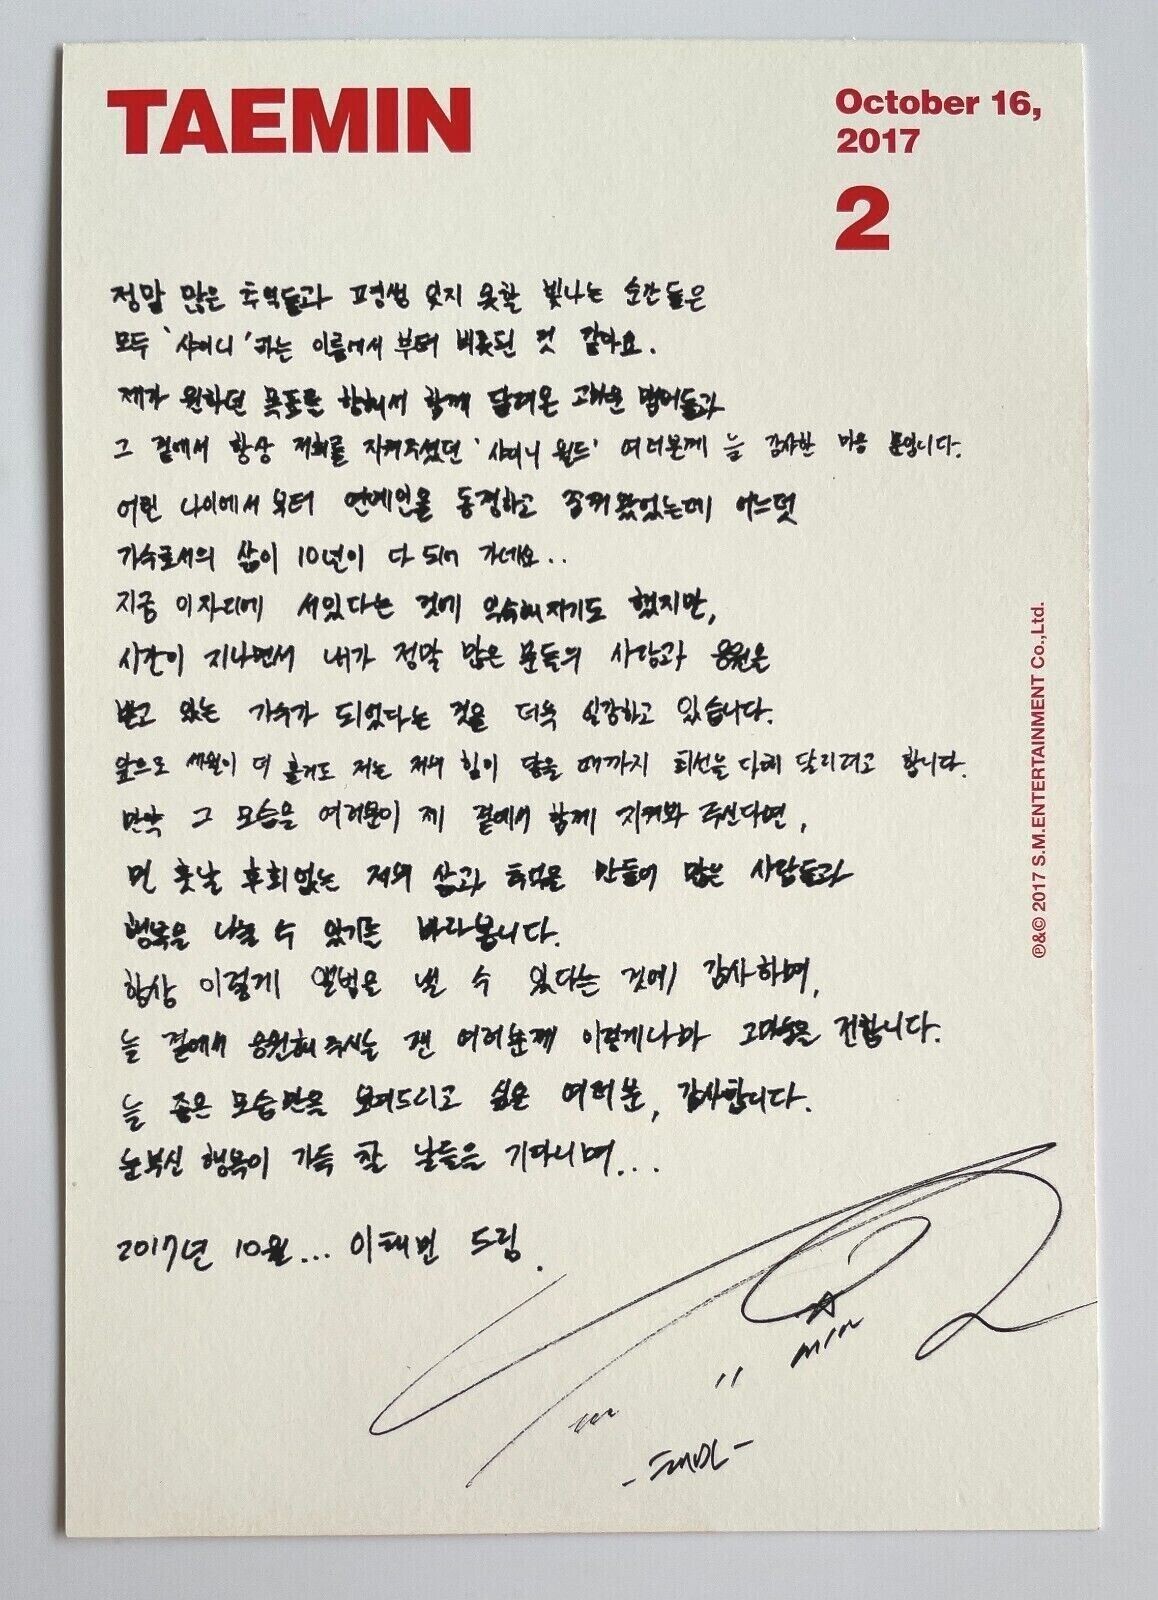 TAEMIN
October 16,
2017
2
정말 많은 추억들과 평생 잊지 못할 빛나는 순간들은
모두 '샤이니'라는 이름에서 부터 비롯된 것 같아요.
제가 원하던 목표를 향해서 함께 달려온 고마운 멤버들과
그 곁에서 항상 저희를 지켜주셨던 '샤이니 월드' 여러분께 늘 감사한 마음 뿐입니다.
어린 나이에서 부터 연예인을 동경하고 꿈꿔 왔었는데 어느덧
가수로서의 삶이 10년이 다 되어 가네요..
지금 이자리에 서있다는 것에 익숙해지기도 했지만,
시간이 지나면서 내가 정말 많은 분들의 사랑과 응원을
받고 있는 가수가 되었다는 것을 더욱 실감하고 있습니다.
앞으로 세월이 더 흘러도 저는 제 힘이 닿을 때까지 최선을 다해 달리려고 합니다.
만약 그 모습을 여러분이 제 곁에서 함께 지켜봐 주신다면,
먼 훗날 후회없는 저의 삶과 추억을 만들어 많은 사람들과
행복을 나눌 수 있기를 바라봅니다.
항상 이렇게 앨범을 낼 수 있다는 것에 감사하며,
늘 곁에서 응원해 주시는 팬 여러분께 이렇게나마 고마움을 전합니다.
늘 좋은 모습만을 보여드리고 싶은 여러분, 감사합니다.
눈부신 행복이 가득 찰 날들을 기다리며...
2017년 10월... 이태민 드림.
MIN
-태민-
℗&© 2017 S.M.ENTERTAINMENT Co.,Ltd.